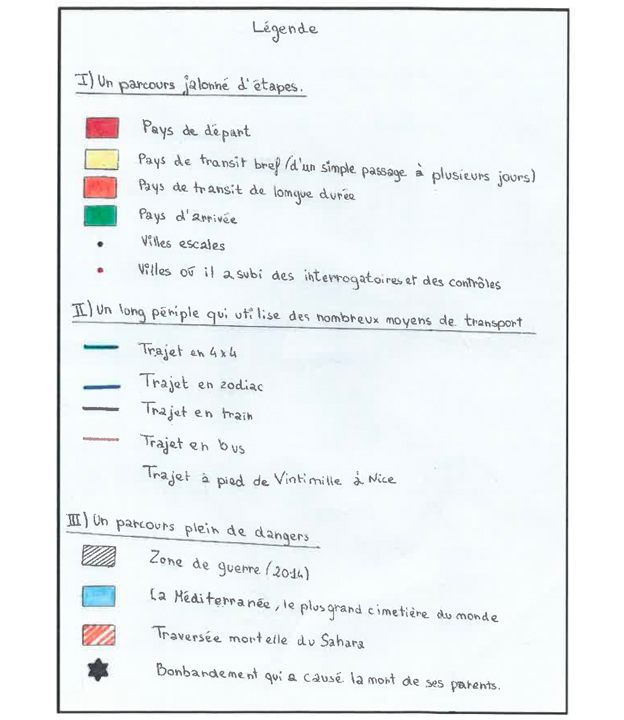 Légende
I) Un parcours jalonné d'étapes.
Pays de départ
Pays de transit bref (d'un simple passage à plusieurs jours)
Pays de transit de longue durée
Pays d'arrivée
Villes escales
Villes où il a subi des interrogatoires et des contrôles
II) Un long périple qui utilise des nombreux moyens de transport
Trajet en 4x4
Trajet en zodiac
Trajet en train
Trajet en bus
Trajet à pied de Vintimille à Nice
III) Un parcours plein de dangers
Zone de guerre (2014)
La Méditerranée, le plus grand cimetière du monde
Traversée mortelle du Sahara
Bonbardement qui a causé la mort de ses parents.